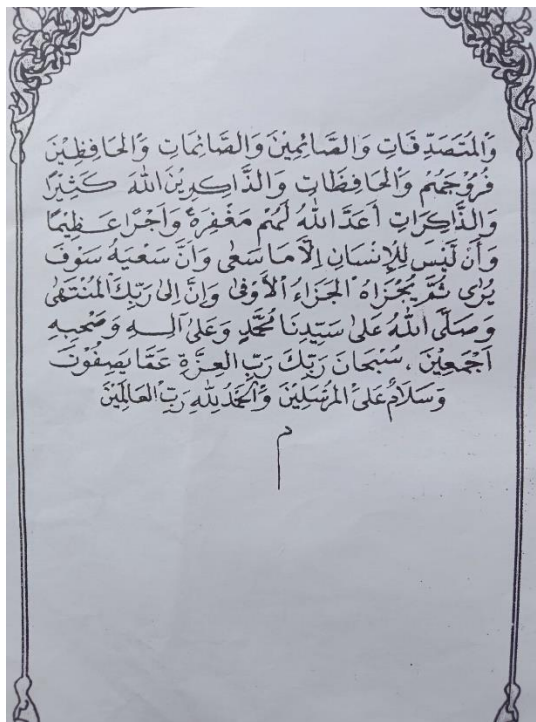 وَالْمُتَصَدِّقَاتِ وَالصَّائِمِيْنَ وَالصَّائِمَاتِ وَالْحَافِظِيْنَ
فُرُوْجَهُمْ وَالْحَافِظَاتِ وَالذَّاكِرِيْنَ اللهَ كَثِيْرًا
وَالذَّاكِرَاتِ أَعَدَّ اللهُ لَهُمْ مَغْفِرَةً وَاَجْرًا عَظِيْمًا
وَأَنْ لَيْسَ لِلْإِنْسَانِ اِلَّا مَا سَعٰى وَاَنَّ سَعْيَهُ سَوْفَ
يُرٰى ثُمَّ يُجْزَاهُ الْجَزَاءَ الْأَوْفٰى وَاِنَّ اِلٰى رَبِّكَ الْمُنْتَهٰى
وَصَلَّى اللهُ عَلٰى سَيِّدِنَا مُحَمَّدٍ وَعَلٰى آلِهِ وَصَحْبِهِ
اَجْمَعِيْنَ ، سُبْحَانَ رَبِّكَ رَبِّ الْعِزَّةِ عَمَّا يَصِفُوْنَ
وَسَلَامٌ عَلَى الْمُرْسَلِيْنَ وَالْحَمْدُ لِلّٰهِ رَبِّ الْعَالَمِيْنَ
م